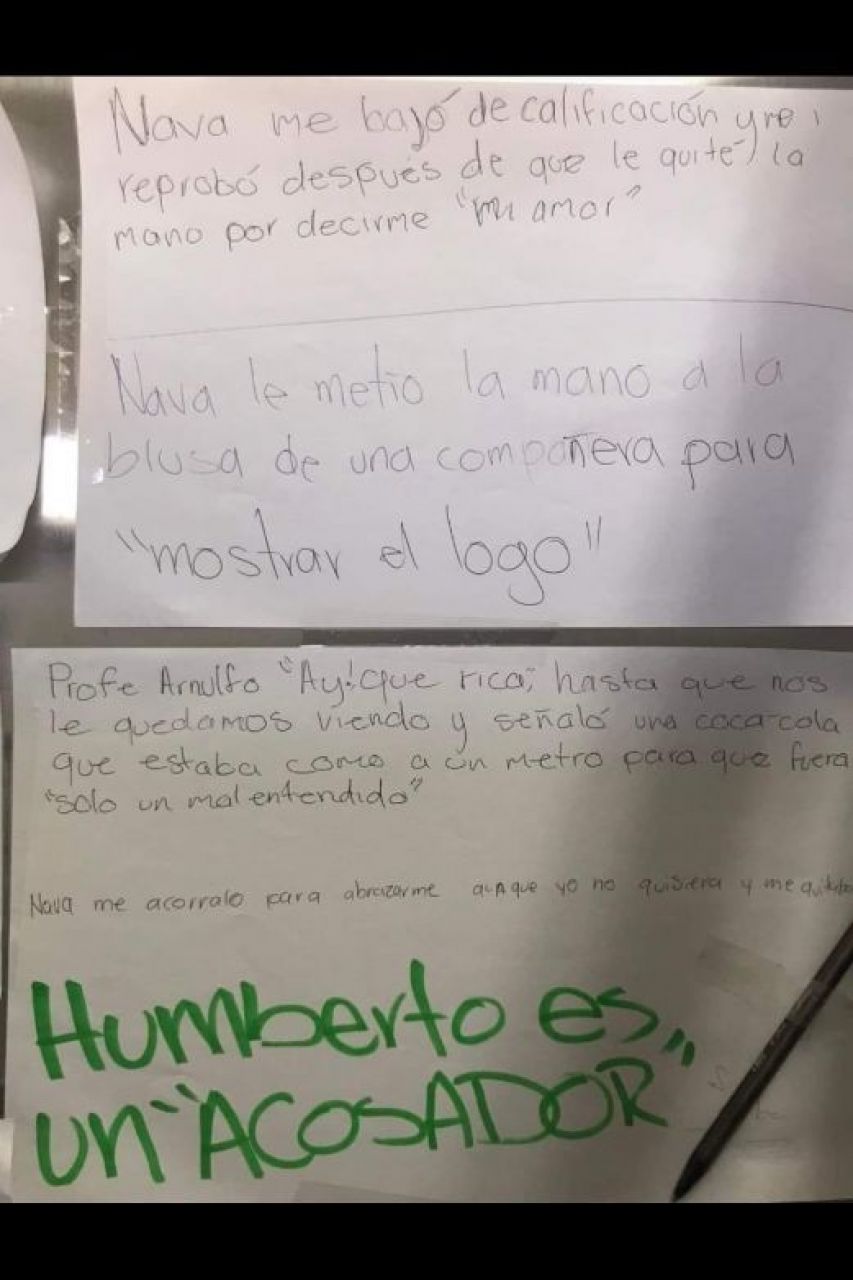 Nava me bajó de calificación y re
reprobó después de que le quité la
mano por decirme "mi amor"
Nava le metio la mano a la
blusa de una compañera para
"mostrar el logo"
Profe Arnulfo "Ay! que rica", hasta que nos
le quedamos viendo y señaló una coca-cola
que estaba como a un metro para que fuera
"solo un mal entendido"
Nava me acorralo para abrazarme aunque yo no quisiera y me
Humberto es
un "ACOSADOR"